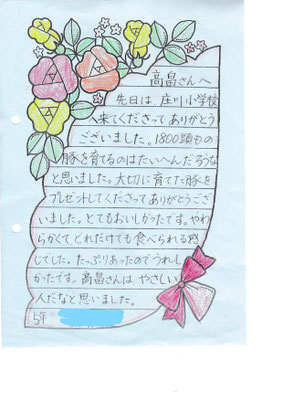 高畠さんへ
先日は、庄川小学校
へ来てくださってありがとう
ございました。1800頭もの
豚を育てるのはたいへんだろうな
と思いました。大切に育てた豚を
プレゼントしてくださってありがとうござ
いました。とてもおいしかったです。やわ
らかくて、どれだけでも食べられる感
じでした。たっぷりあったのでうれし
かったです。高畠さんは、やさしい
人だなと思いました。
5年